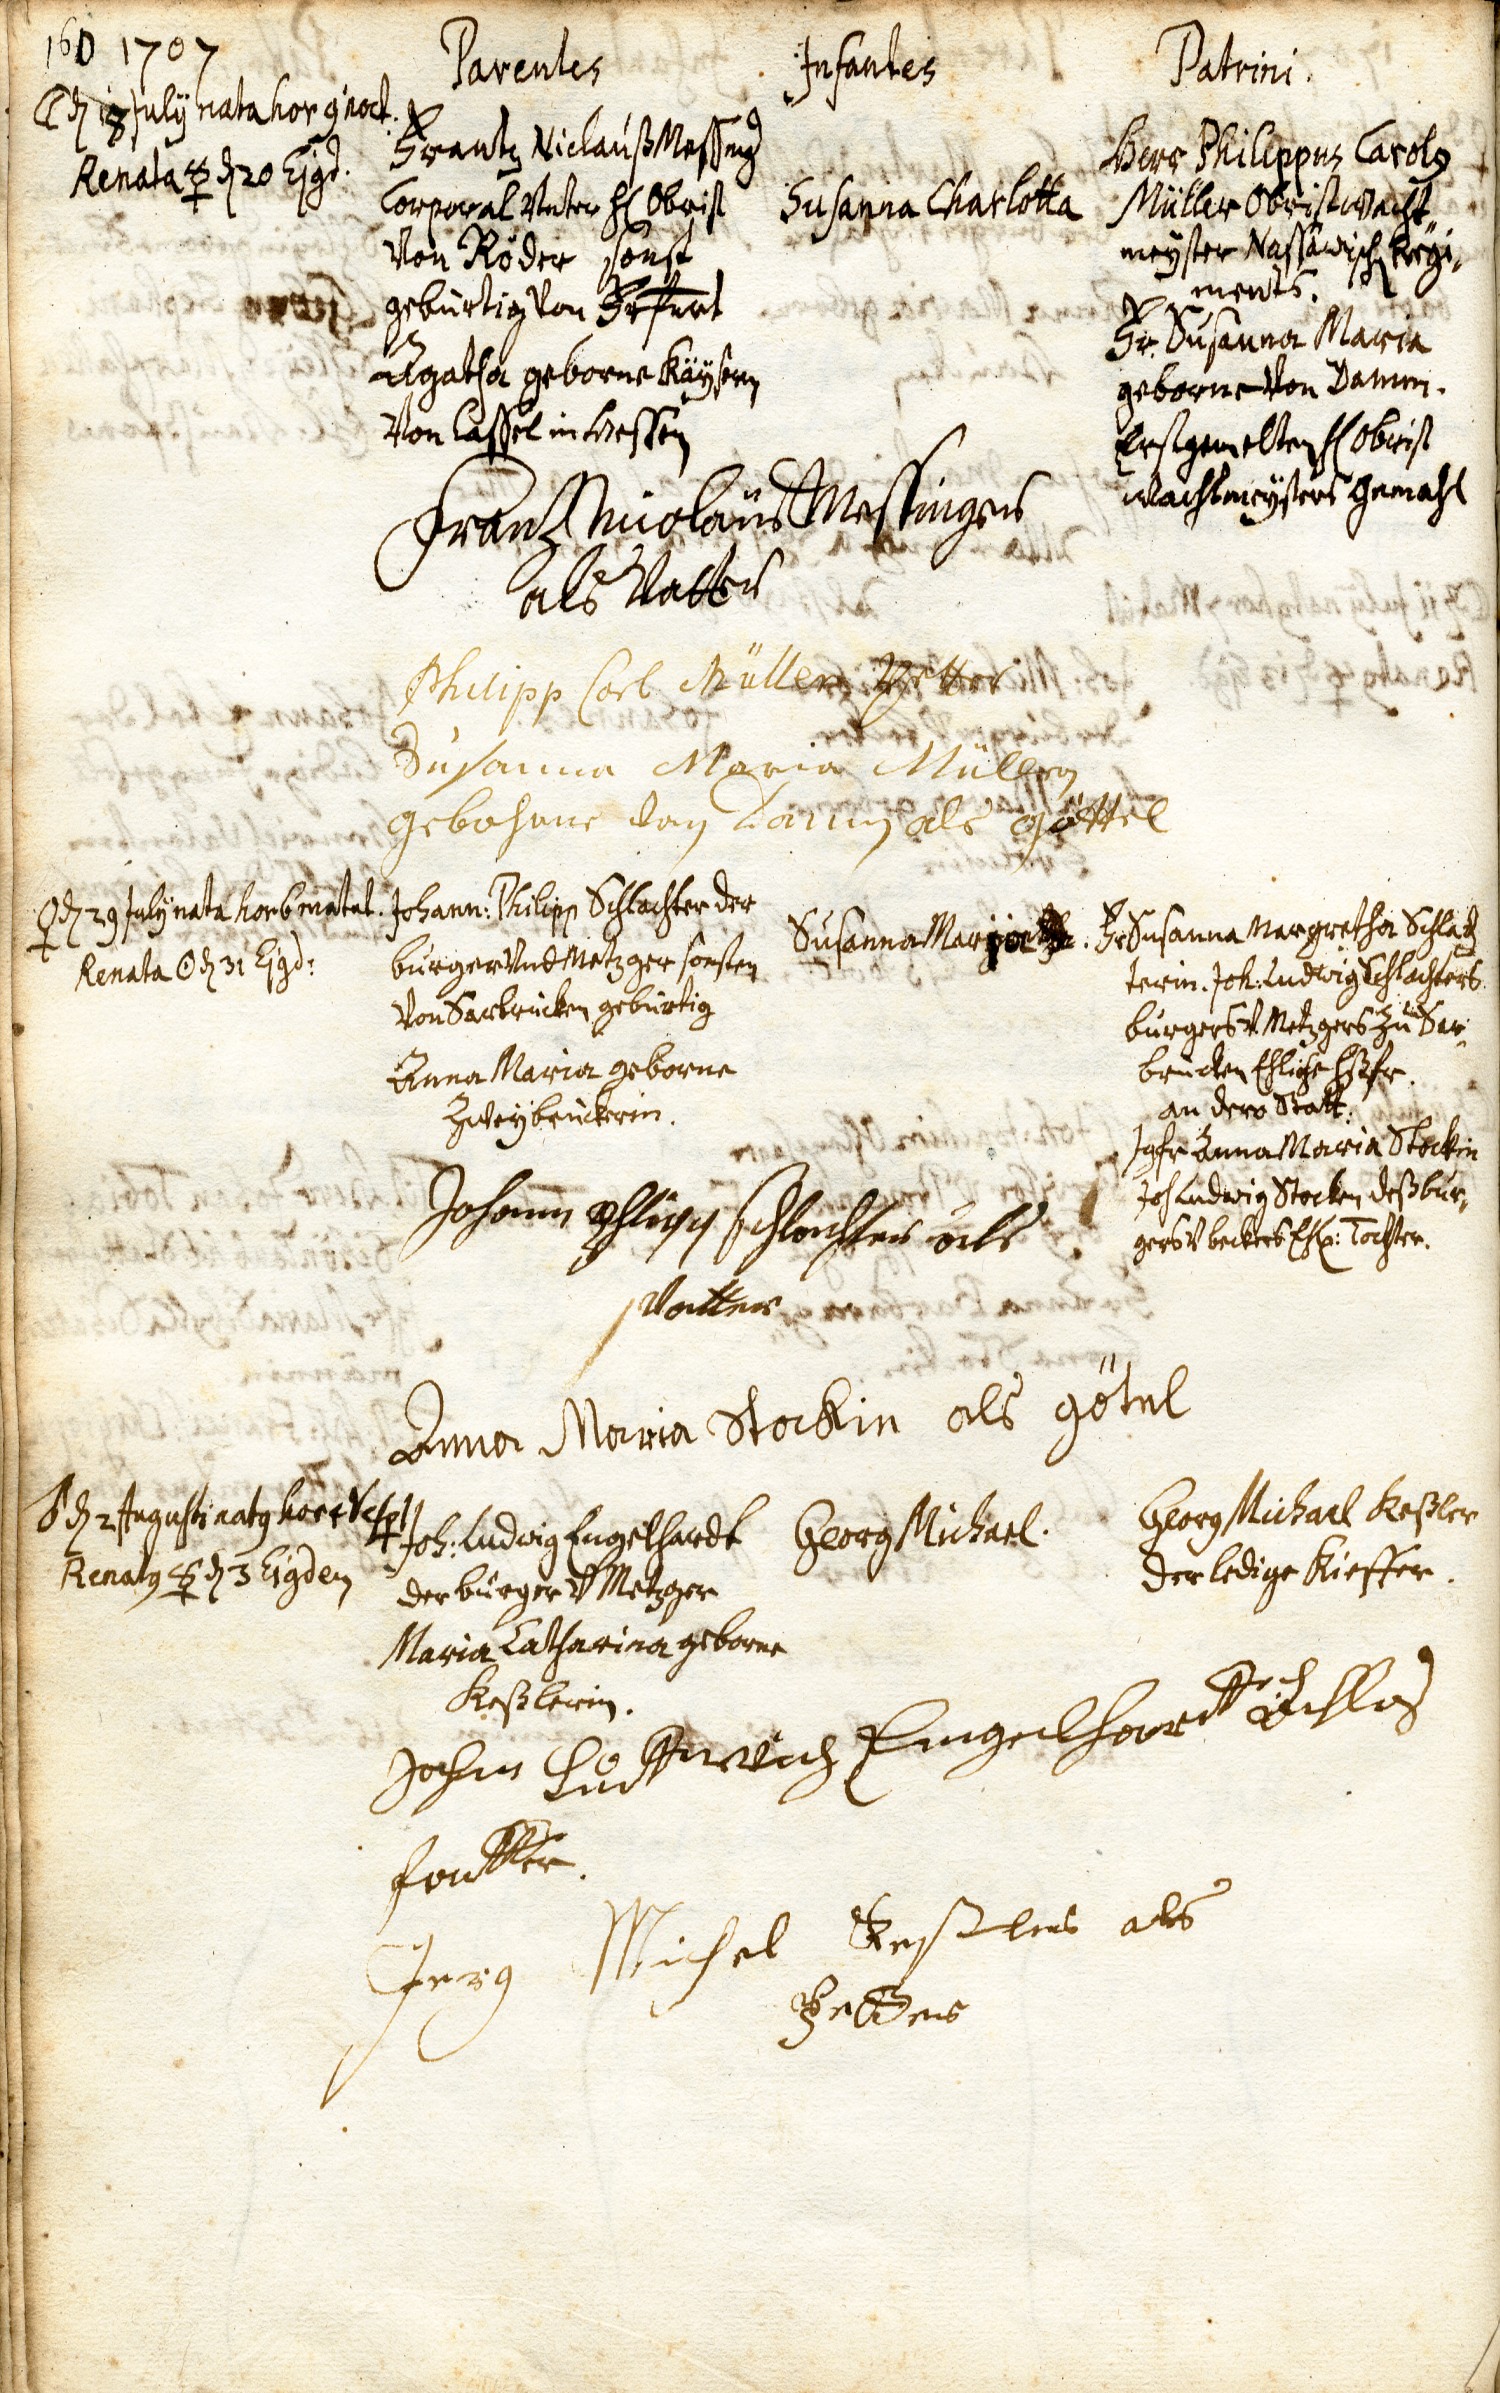 160 1707
Parentes
Infantes
Patrini.
☾ d 18 July nata hor 9 noct.
Renata ☿ d 20 Ejgd.
Frantz Niclauß Messing
Corporal Unter H Obrist
Von Röder sonst
gebürtig Von Erffurt
Agatha geborne Käysern
Von Cassel in Hessen
Susanna Charlotta
Herr Philippus Carolg
Müller Obristwacht-
meyster Nassawisch Regi-
ments.
Fr. Susanna Maria
geborne Von Damm.
Erstgemelten H Obrist
wachtmeysters Gemahl
Frantz Nicolaus Messinger
als Vatter
Philipp Carl Müller Petter
Susanna Maria Müllern
gebohrne Von Damm als göttel
♀ d 29 July nata hor 6 matut.
Renata ☉ d 31 Ejgd:
Johann: Philipp Schlachter der
burger Und Metzger sonsten
Von Sarbrücken gebürtig
Anna Maria geborne
Zweybrückerin.
Susanna Mar
Fr Susanna Margretha Schlach
terin. Joh: Ludwig Schlachters
burgers V. Metzgers Zu Sar-
brücken Ehliche Hßfr.
an dero Statt.
Jgfr Anna Maria Stockin
Joh Ludwig Stocken deß bur-
gers V beckers Ehl: Tochter.
Johann Philipp Schlachter als
Vatter
Anna Maria Stockin als götel
♂ d 2 Augusti natg hor 4 Vesp
Renatg ☿ d 3 Ejgdem
Joh: Ludwig Engelhardt
der burger V Metzger
Maria Catharina geborne
Keßlerin.
Georg Michael.
Georg Michael Keßler
der ledige Kieffer.
Johan Ludtwich Engelhardt
fautter.
Jerg Michel Keßler als
Petter